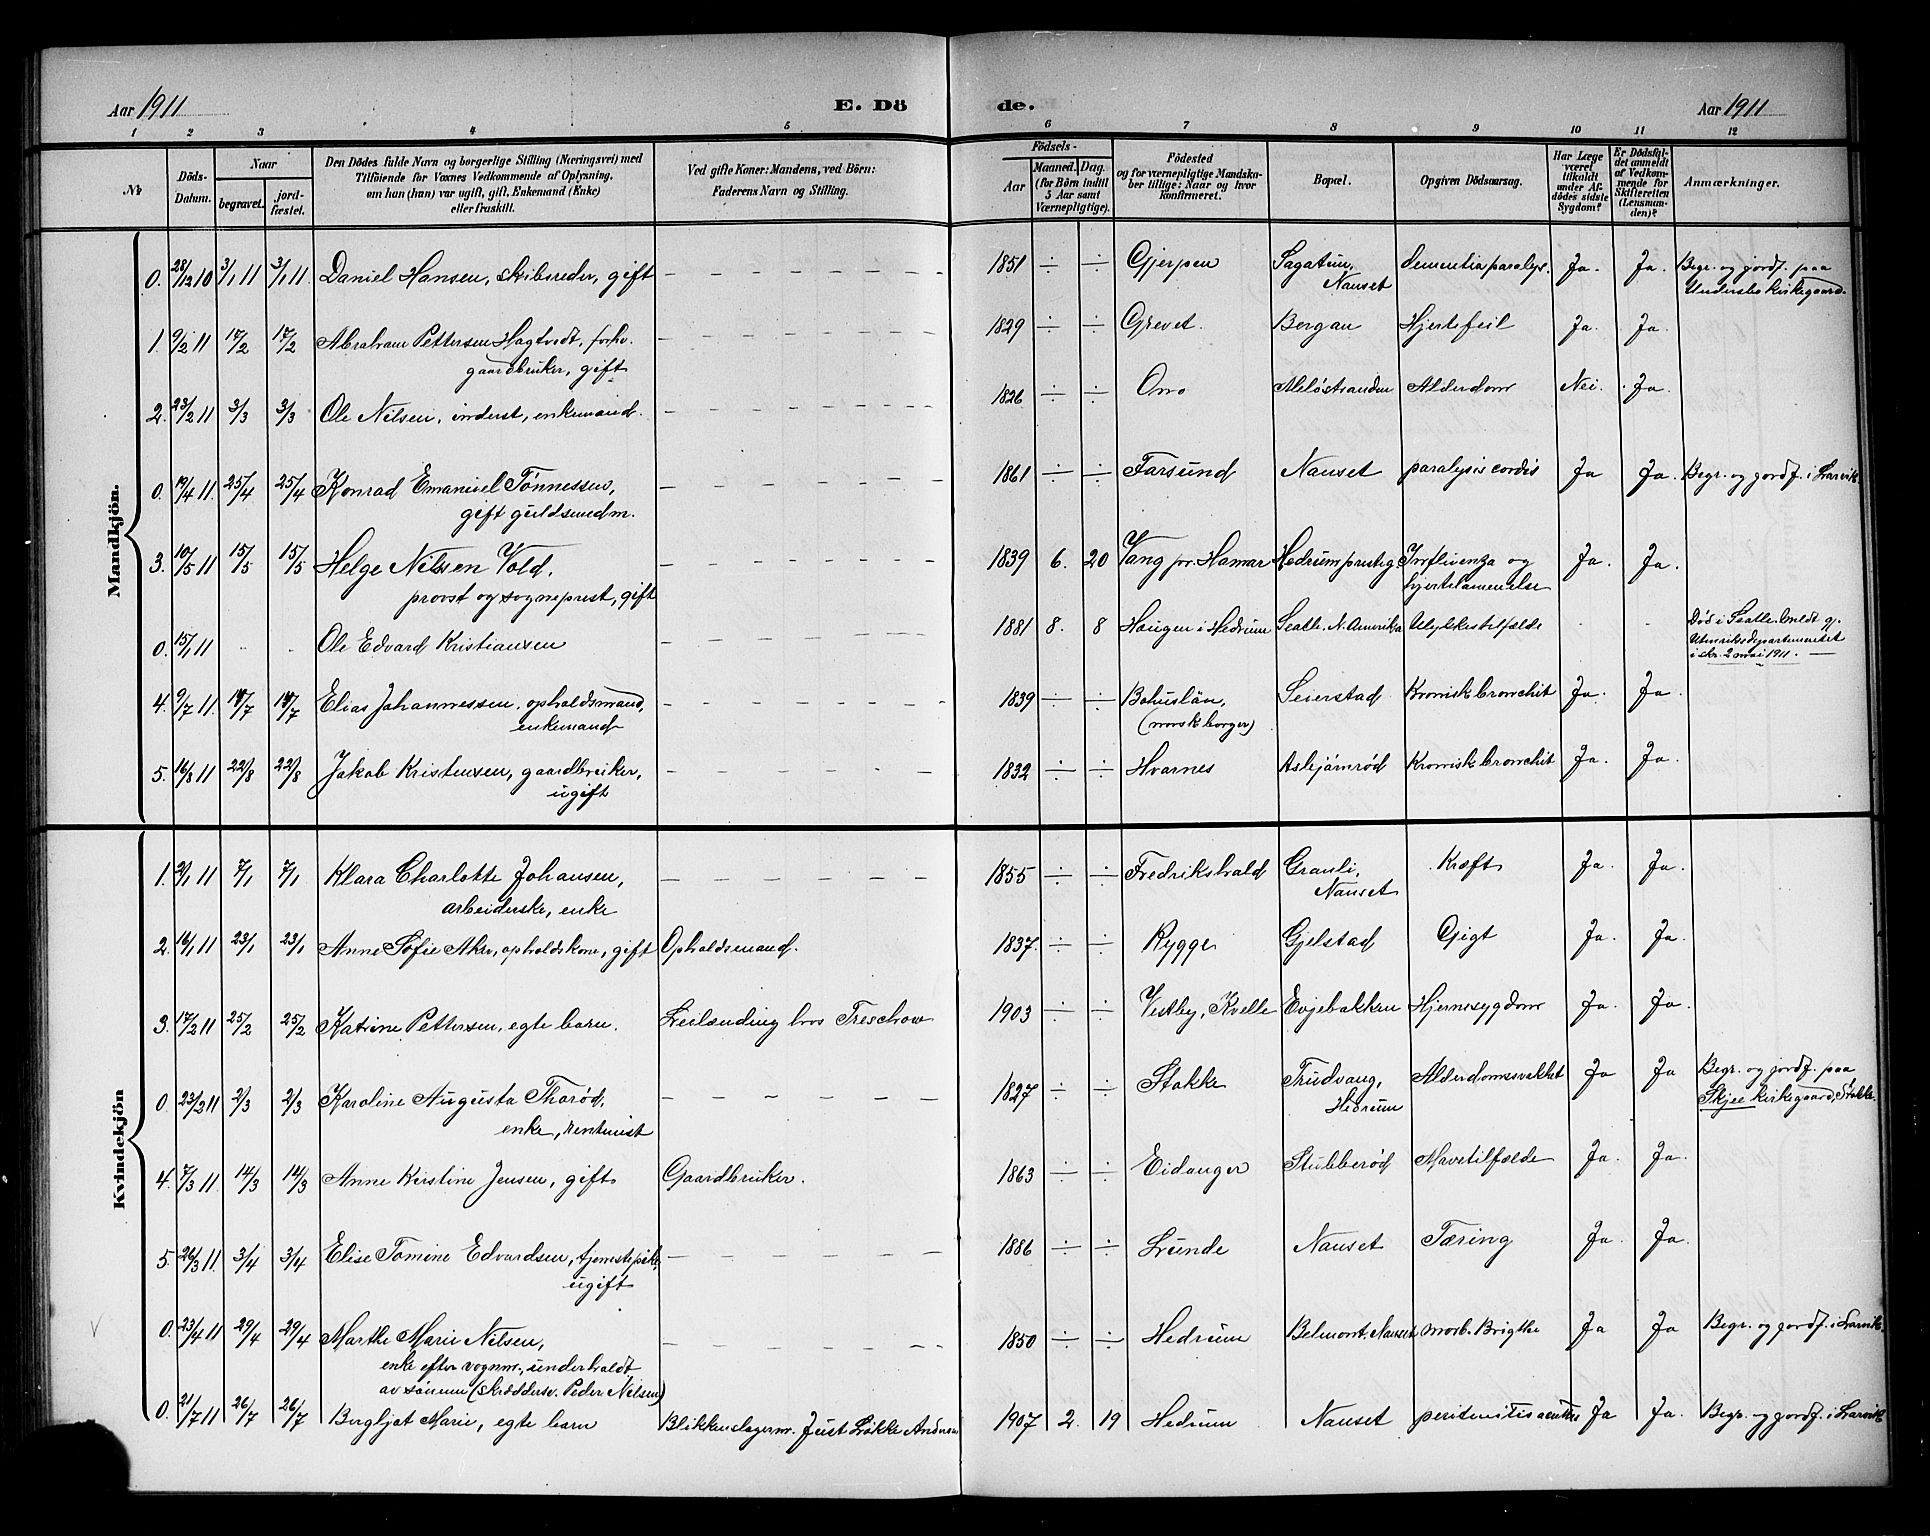 Aar 1911 E. Dö de. Aar 1911
1 2 3 4 5 6 7 8 9 10 11 12
No
Döds-Datum.
Naar
begravet.
jord-fæstet.
Den Dödes fulde Navn og borgerlige Stilling (Næringsvei) med
Tilföiende for Voxnes Vedkommende af Oplysning,
om han (hun) var ugift, gift, Enkemand (Enke)
eller fraskilt.
Ved gifte Koner: Mandens, ved Börn:
Faderens Navn og Stilling.
Födsels-
Aar
Maaned. Dag.
(for Börn indtil
5 Aar samt
Værnepligtige).
Födested
og for værnepligtige Mandska-
ber tillige: Naar og hvor
Konfirmeret.
Bopæl.
Opgiven Dödsaarsag.
Har Læge
været
tilkaldt
under Af-
dödes sidste
Sygdom?
Er Dödsfal-
det anmeldt
af Vedkom-
mende for
Skifteretten
(Lensman-
den)?
Anmærkninger.
Mandkjön.
0. 28/12 10 3/1 11 3/1 11. Daniel Hansen, skibsreder, gift — 1851 ÷ ÷ Gjerpen Sagatun, Dementia paralys. Ja. Ja. Begr. og jordf. paa
Nanset Undersbo kirkegaard.
1. 9/2 11 17/2 17/2 Abraham Pettersen Hagtvedt, forhv. — 1829 ÷ ÷ Grevet. Bergan Hjertefeil Ja. Ja.
gaardbruker, gift
2. 23/2 11 3/3 3/3 Ole Nilsen, inderst, enkemand. — 1826 ÷ ÷ Ono Meløstranden Alderdom Nei. Ja.
0. 19/4 11. 25/4 25/4 Konrad Emanuel Tønnessen, — 1861 ÷ ÷ Farsund Nanset paralysis cordis Ja Ja. Begr. og jordf. i Larvik.
gift guldsmedm.
3. 10/5 11 15/5 15/5 Helge Nilssen Vold, — 1839 6. 20 Vang pr. Hamar Hedrum presteg. Influenza og Ja. Ja.
provst og sogneprest, gift hjertelammelse
0. 15/1 11 Ole Edvard Kristiansen — 1881 8. 8 Haugen i Hedrum Seatle. N. Amerika Ulykkestilfælde Død i Seatle. Meldt gj.
Utenriksdepartementet
i skr. 2 mai 1911. —
4. 9/7 11. 14/7 14/7 Elias Johannessen, opholdsmand, — 1839 ÷ ÷ Bohuslän, Seierstad Kronisk bronchit Ja. Ja.
enkemand (norsk borger)
5. 16/8 11 22/8 22/8 Jakob Kristensen, gaardbruker, — 1832 ÷ ÷ Hvarnes Asbjørnrød Kronisk bronchit Ja. Ja.
ugift
Kvindekjön
1. 2/1 11 7/1 7/1 Klara Charlotte Johansen, — 1855 ÷ ÷ Fredrikshald Granli, Kræft Ja. Ja.
arbeiderske, enke Nanset
2. 16/1 11 23/1 23/1 Anne Sofie Aker, opholdskone, gift Opholdsmand. 1837. ÷ ÷ Rygge Gjelstad Gigt Ja. Ja.
3. 17/2 11 25/2 25/2 Katrine Pettersen, egte barn. Leilænding hos Treschow 1903 ÷ ÷ Vestby, Kvelle Evjebakken Hjernesygdom Ja. Ja.
0. 23/2 11 2/3 2/3 Karoline Augusta Thorød, — 1827 ÷ ÷ Stokke Trudvang, Alderdomssvakhet Ja Ja Begr. og jordf. paa
enke, rentenist Hedrum Skjee kirkegaard, Stokke.
4. 7/3 11. 14/3 14/3 Anne Kirstine Jensen, gift Gaardbruker. 1863 ÷ ÷ Eidanger Stubberød Mavetilfælde Ja. Ja.
5. 26/3 11. 3/4 3/4 Elise Tomine Edvardsen, tjenestepike, — 1886 ÷ ÷ Lunde Nanset Tæring Ja. Ja.
ugift
0. 23/4 11 29/4 29/4 Marthe Marie Nilsen, — 1850 ÷ ÷ Hedrum Belmont, Nanset morb. Brigthe Ja Ja Begr. og jordf. i Larvik.
enke efter vognm., underholdt
av sønnen (skræddersv. Peder Nilsen)
0. 21/7 11 26/7 26/7 Bergljot Marie, egte barn Blikkenslagerm. Just Løkke Andersen 1907 2. 19 Hedrum Nanset peritonitis acuta Ja Ja. Begr. og jordf. i Larvik